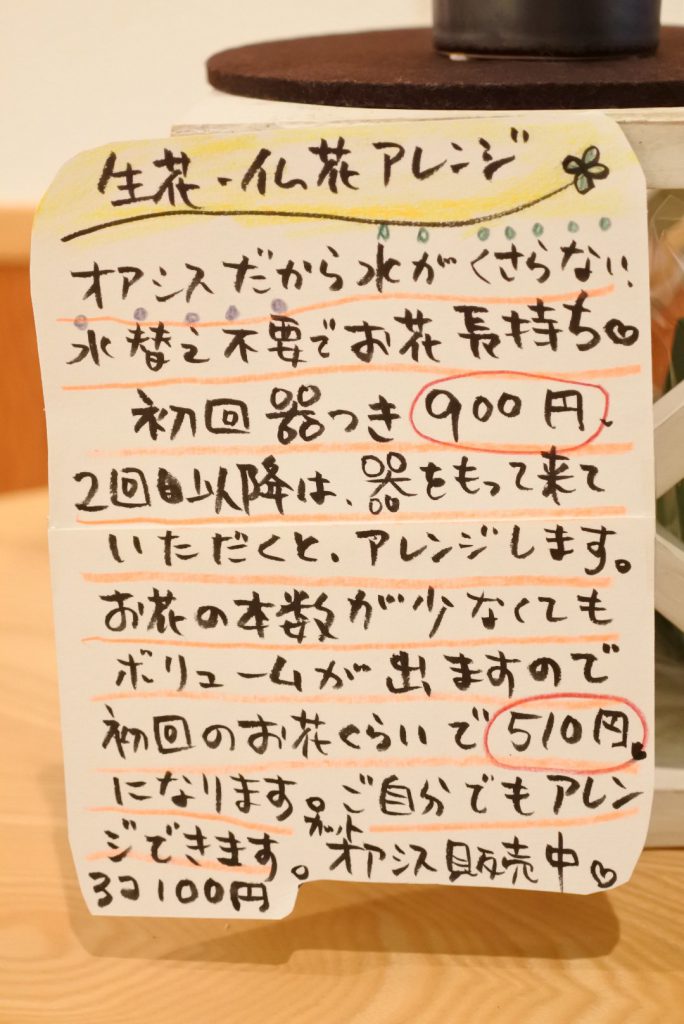 生花・仏花アレンジ
オアシスだから水がくさらない
水替え不要でお花長持ち♡
初回器つき900円、
2回目以降は、器をもって来て
いただくと、アレンジします。
お花の本数が少なくても
ボリュームが出ますので
初回のお花くらいで510円。
になります。ご自分でもアレン
ジできます。カットオアシス販売中♡
3コ100円